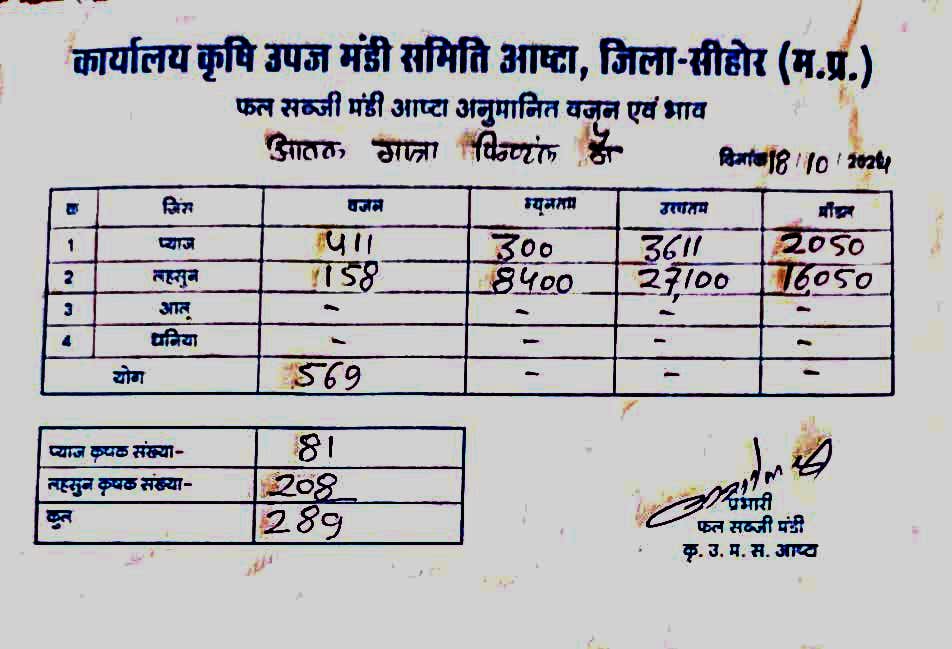 कार्यालय कृषि उपज मंडी समिति आष्टा, जिला-सीहोर (म.प्र.)
फल सब्जी मंडी आष्टा अनुमानित वजन एवं भाव
आवक मात्रा क्विंटल में दिनांक 18/10/2024
क जिंस वजन न्यूनतम उच्चतम मॉडल
1 प्याज 411 300 3611 2050
2 लहसुन 158 8400 27100 16050
3 आलू - - - -
4 धनिया - - - -
योग 569 - - -
प्याज कृषक संख्या- 81
लहसुन कृषक संख्या- 208
कुल 289
प्रभारी
फल सब्जी मंडी
कृ. उ. म. स. आष्टा